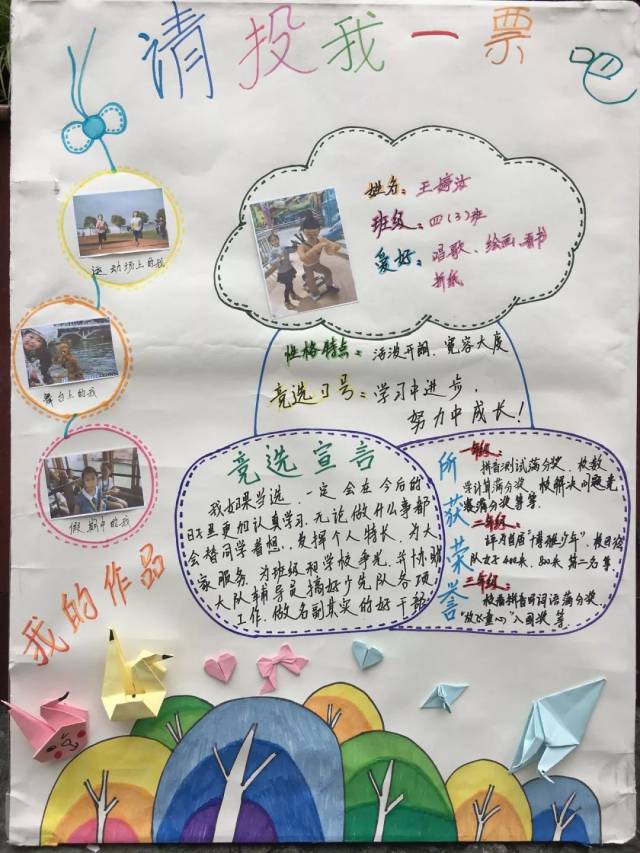 请投我一票吧
姓名：王婷汝
班级：四（3）班
爱好：唱歌、绘画、看书
折纸
运动场上的我
舞台上的我
假期中的我
性格特点：活泼开朗、宽容大度
竞选口号：学习中进步，
努力中成长！
竞选宣言
我如果当选，一定会在今后的
日子里更加认真学习，无论做什么事都
会替同学着想，发挥个人特长，为大
家服务，为班级和学校争光，并协助
大队辅导员搞好少先队各项
工作，做名副其实的好干部
所获荣誉
一年级：
拼音测试满分奖、校数
学计算满分奖、校解决问题竞
赛满分奖等等。
二年级：
评为首届“博雅少年”，校田径
队女子400米、800米第二名等。
三年级：
校看拼音写词语满分奖，
“放飞童心”入围奖等。
我的作品